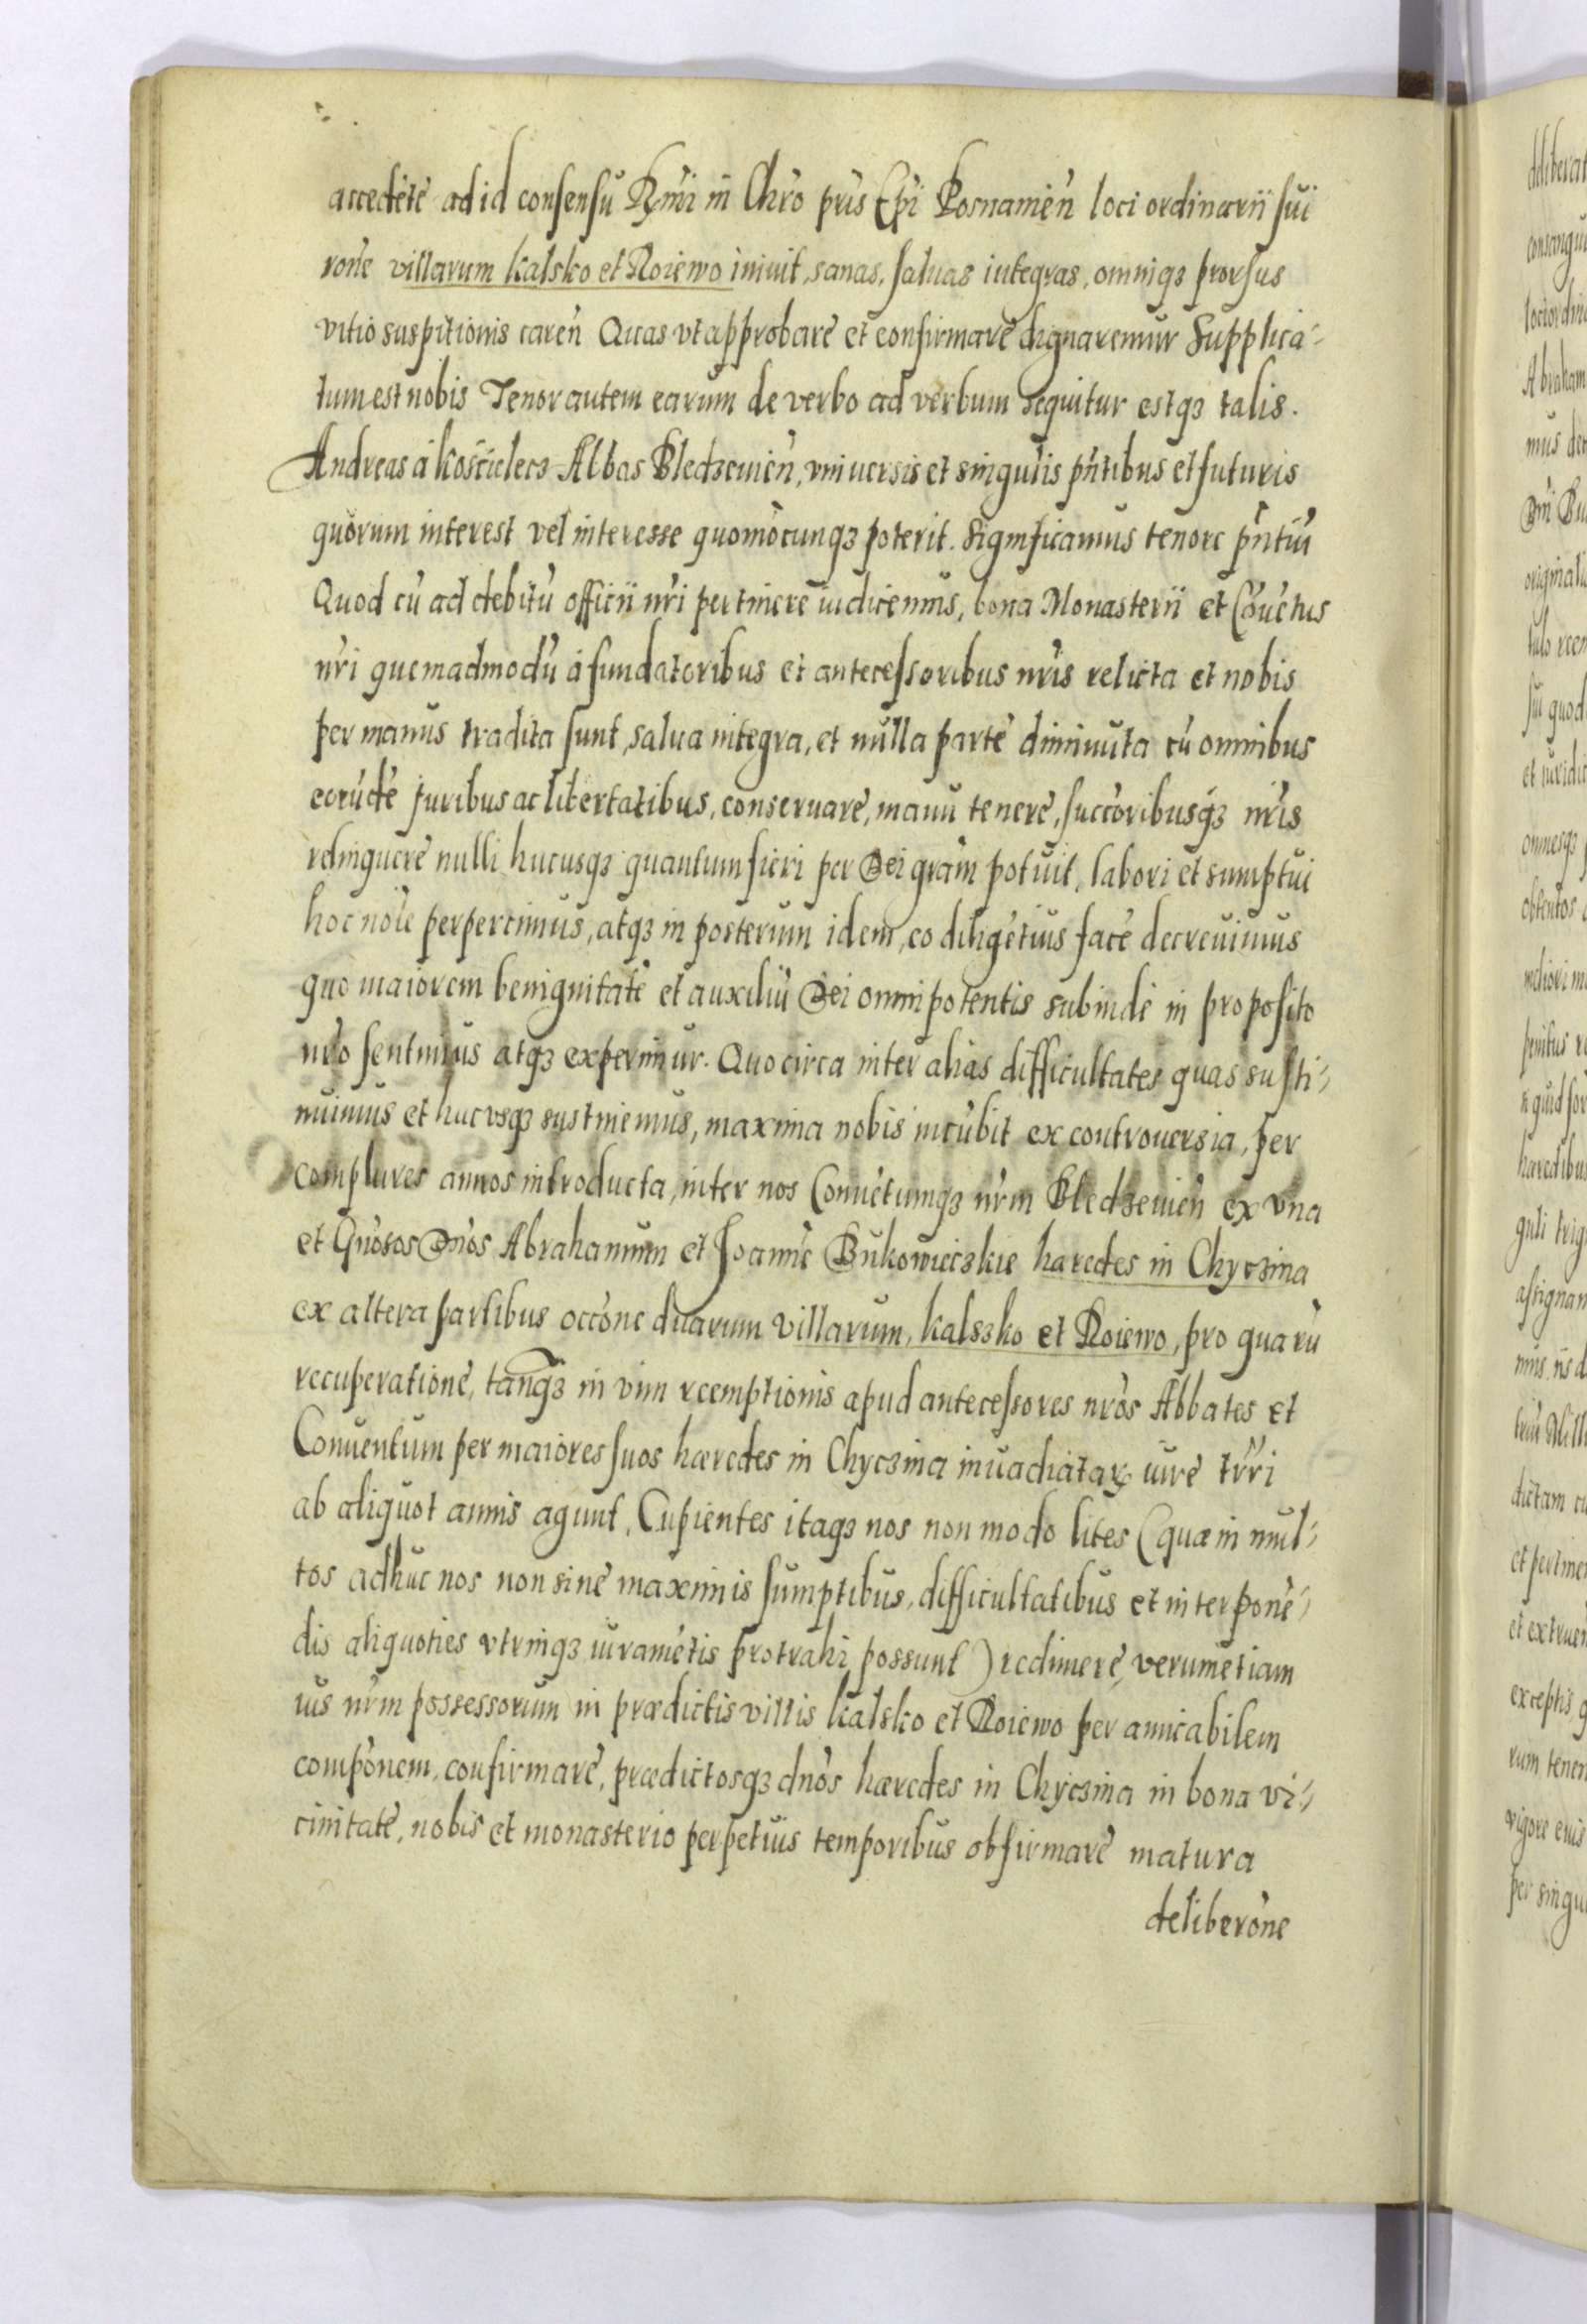 accedẽte ad id consensũ Rm̃i in Chr̃o pr̃is Ep̃i Posnamieñ loci ordinarii sui
roñe villarum Kalsko et Roiewo iniuit, sanas, saluas integras, omniqꝫ prorsus
vitio suspitionis careñ Quas vt approbare et confirmare dignaremur Supplica-
tum est nobis Tenor autem earum de verbo ad verbum sequitur estqꝫ talis.
Andreas á Kościelecz Abbas Bledzeuieñ, vniuersis et singulis pñtibus et futuris
quorum interest vel interesse quomõcunqꝫ poterit. Significamus tenore pñtiũ
Quod cũ ad debitũ officii nr̃i pertinere iudicemus, bona Monasterii et Cõuẽtus
nr̃i quemadmodũ á fundatoribus et antecessoribus nr̃is relicta et nobis
per manus tradita sunt, salua integra, et nulla parte diminuta cũ omnibus
eorũdẽ juribus ac libertatibus, conseruare, manu tenere, succ̃oribusqꝫ nr̃is
relinquere nulli hucusqꝫ quantum fieri per Dei grãm potuit, labori et sumptui
hoc noĩe perpercimus, atqꝫ in posterum idem, eo diligẽtius facẽ decreuimus
quo maiorem benignitatẽ et auxiliũ Dei omnipotentis subinde in proposito
nr̃o sentimus atqꝫ experimur. Quocirca inter alias difficultates quas susti-
nuimus et huc vsqꝫ sustinemus, maxima nobis incũbit ex controuersia, per
complures annos introducta, inter nos Conuẽtumqꝫ nr̃m Bledzeuieñ ex vna
et Gñosos Dños Abrahamum et Joannẽ Bukowieczkie haredes in Chyczina
ex altera partibus occõne duarum villarum, Kalszko et Roiewo, pro quarũ
recuperatione, tanqꝫ in vim reemptionis apud antecessores nr̃os Abbates et
Conuentum per maiores suos hæredes in Chyczina inuadiataꝝ iure tr̃ri
ab aliquot annis agunt, Cupientes itaqꝫ nos non modo lites (quæ in mul-
tos adhuc nos non sine maximis sumptibus, difficultatibus et interponẽ-
dis aliquoties vtrinqꝫ iuramẽtis protrahi possunt) redimere, verumetiam
ius nr̃m possessorium in prædictis villis Kalsko et Roiewo per amicabilem
compõnem, confirmare, prædictosqꝫ dños hæredes in Chyczina in bona vi-
cinitate, nobis et monasterio perpetuis temporibus obfirmare matura
deliberõne